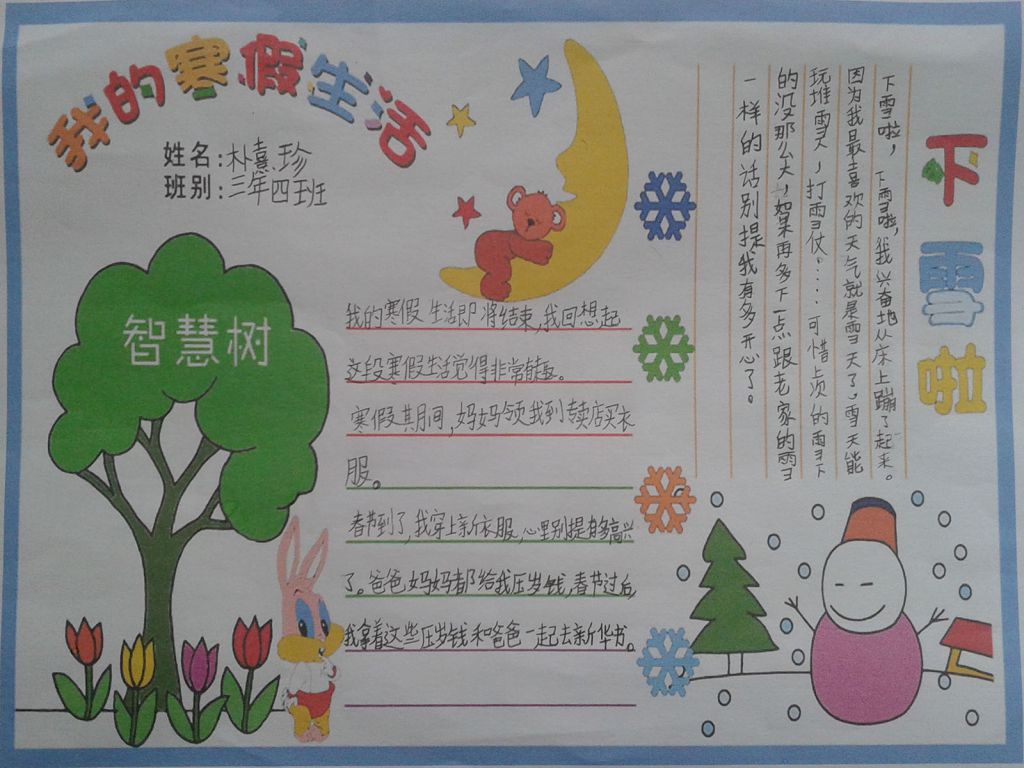 我的寒假生活
姓名:朴熹珍
班别:三年四班
智慧树
我的寒假生活即将结束,我回想起
这段寒假生活觉得非常有趣。
寒假其期间,妈妈领我到专卖店买衣
服。
春节到了,我穿上新衣服,心里别提有多高兴
了。爸爸妈妈都给我压岁钱,春节过后,
我拿着这些压岁钱和爸爸一起去新华书。
下雪啦
下雪啦,下雪啦,我兴奋地从床上蹦了起来。
因为我最喜欢的天气就是雪天了,雪天能
玩堆雪人,打雪仗……可惜上次的雪下
的没那么大,如果再多下一点跟老家的雪
一样的话别提我有多开心了。